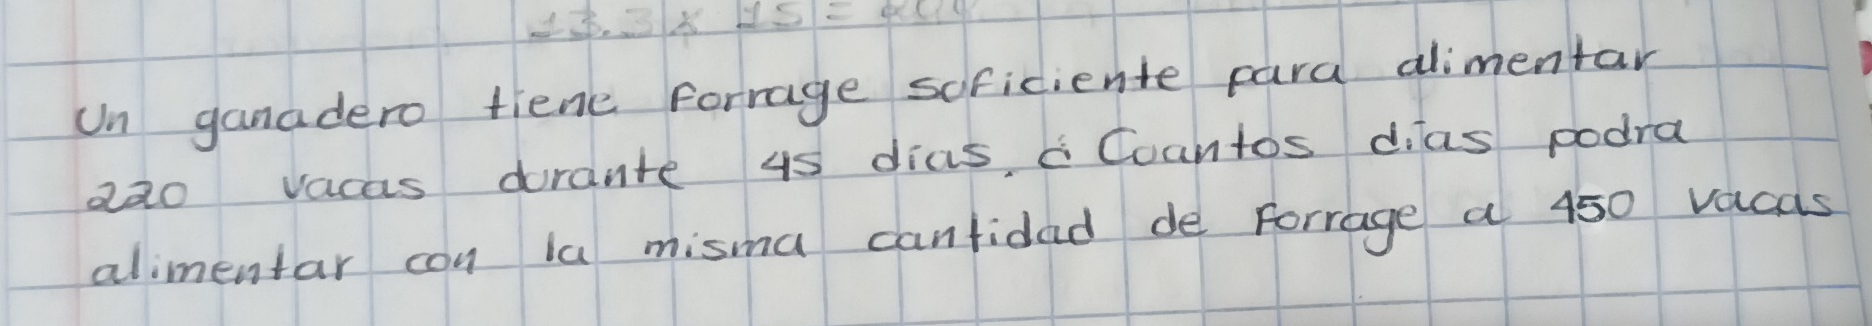 Un ganadero tiene forrage soficiente para alimentar
220 vacas dorante 45 dias. ¿Coantos dias podra
alimentar con la misma cantidad de forrage a 450 vacas